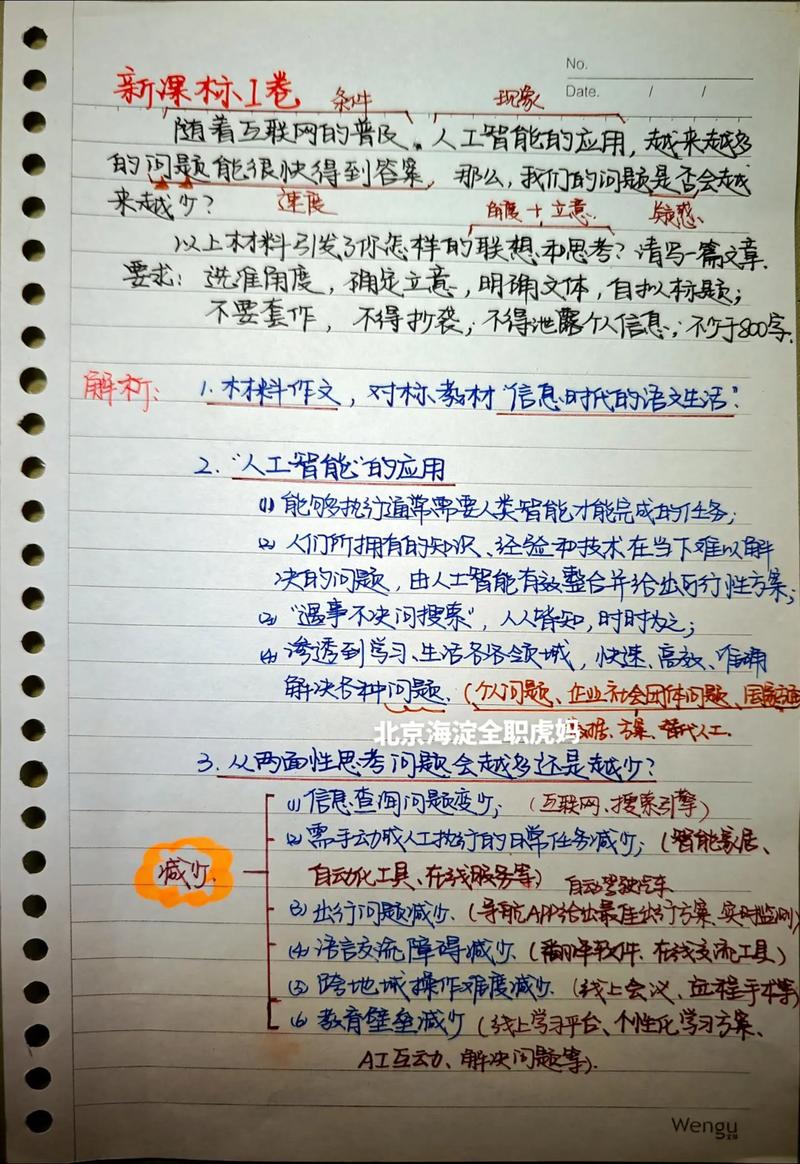 No.
Date. / /
新课标I卷
条件 现象
随着互联网的普及、人工智能的应用，越来越多
的问题能很快得到答案，那么，我们的问题是否会越
来越少？
速度 角度＋立意 疑惑
以上材料引发了你怎样的联想和思考？请写一篇文章.
要求：选准角度，确定立意，明确文体，自拟标题；
不要套作，不得抄袭；不得泄露个人信息；不少于800字.
解析：
1. 材料作文，对标教材"信息时代的语文生活".
2. "人工智能"的应用
(1) 能够执行通常需要人类智能才能完成的任务；
(2) 人们所拥有的知识、经验和技术在当下难以解
决的问题，由人工智能有效整合并给出可行性方案；
(3) "遇事不决问搜索"，人人皆知，时时为之；
(4) 渗透到学习、生活各各领域，快速、高效、准确
解决各种问题.（个人问题、企业社会团体问题、国家
方案、替代人工.
北京海淀全职虎妈
3. 从两面性思考问题会越多还是越少？
减少.
(1) 信息查询问题变少；（互联网、搜索引擎）
(2) 需手动或人工执行的日常任务减少；（智能家居、
自动化工具、在线服务等）自动驾驶汽车
(3) 出行问题减少.（导航APP给出最佳出行方案、实时监测）
(4) 语言交流障碍减少.（翻译软件、在线交流工具）
(5) 跨地域操作难度减少.（线上会议、远程手术等）
(6) 教育壁垒减少（线上学习平台、个性化学习方案、
AI互动、解决问题等）.
Wengu